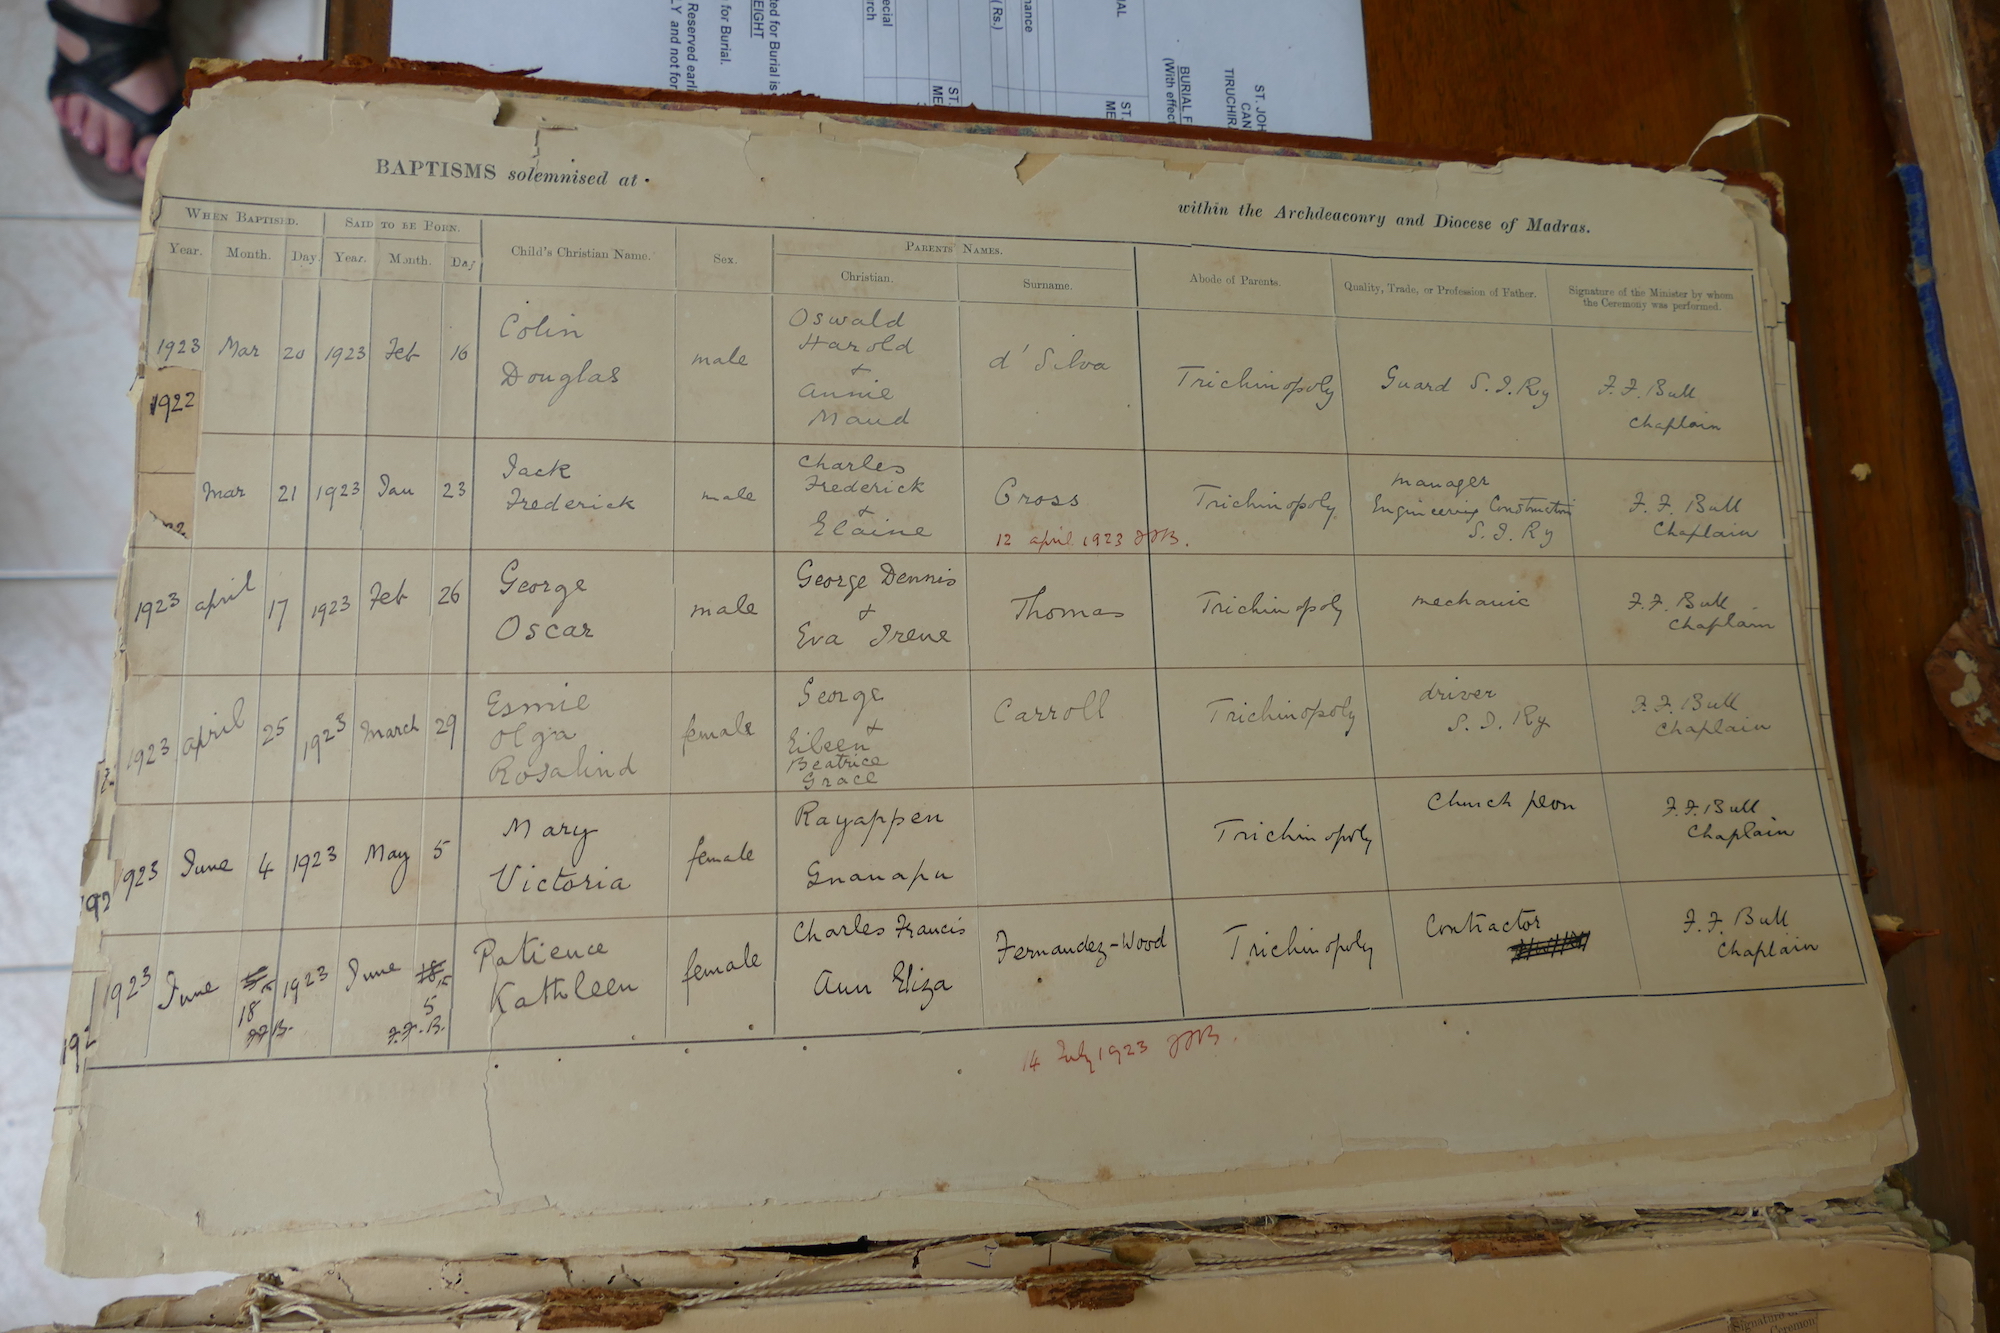 BAPTISMS solemnised at
within the Archdeaconry and Diocese of Madras.
WHEN BAPTISED.
SAID TO BE BORN.
Child's Christian Name.
Sex.
PARENTS' NAMES.
Abode of Parents.
Quality, Trade, or Profession of Father.
Signature of the Minister by whom
the Ceremony was performed.
Year. Month. Day. Year. Month. Day
Christian.
Surname.
1923 Mar 20 1923 Feb 16
Colin
Douglas
male
Oswald
Harold
+
Annie
Maud
d'Silva
Trichinopoly
Guard S.I.Ry
F.F. Bull
Chaplain
1922
Mar 21 1923 Jan 23
Jack
Frederick
male
Charles
Frederick
+
Elaine
Cross
12 april 1923 FFB.
Trichinopoly
manager
Engineering Construction
S.I.Ry
F.F. Bull
Chaplain
1923 april 17 1923 Feb 26
George
Oscar
male
George Dennis
+
Eva Irene
Thomas
Trichinopoly
mechanic
F.F. Bull
Chaplain
1923 april 25 1923 March 29
Esmie
Olga
Rosalind
female
George
+
Eileen
Beatrice
Grace
Carroll
Trichinopoly
driver
S.I.Ry
F.F. Bull
Chaplain
1923 June 4 1923 May 5
Mary
Victoria
female
Rayappen
Gnanapu
Trichinopoly
Church peon
F.F. Bull
Chaplain
192
1923 June 18 1923 June 5
F.F.B.
F.F.B.
Patience
Kathleen
female
Charles Francis
Ann Eliza
Fernandez-Wood
Trichinopoly
Contractor
F.F. Bull
Chaplain
192
14 July 1923 FFB.
ST. JOH
CAN
TIRUCHIR
BURIAL F
(With effect
ST.
ME
IAL
nance
( Rs.)
ST.
ME
ecial
rch
ted for Burial is
EIGHT
for Burial.
Reserved earli
LY and not for
Signature of
Ceremon